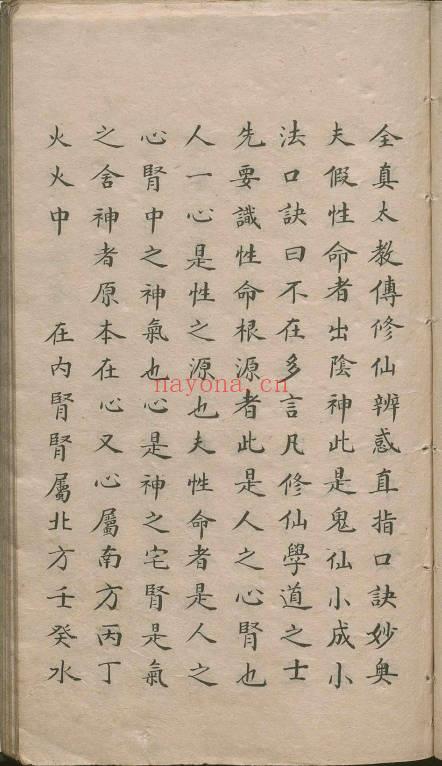 全真太教傳修仙辨惑直指口訣妙奥
夫假性命者出陰神此是鬼仙小成小
法口訣曰不在多言凡修仙學道之士
先要識性命根源者此是人之心腎也
人一心是性之源也夫性命者是人之
心腎中之神氣也心是神之宅腎是氣
之舍神者原本在心又心屬南方丙丁
火火中 在内腎腎屬北方壬癸水
nayona.cn